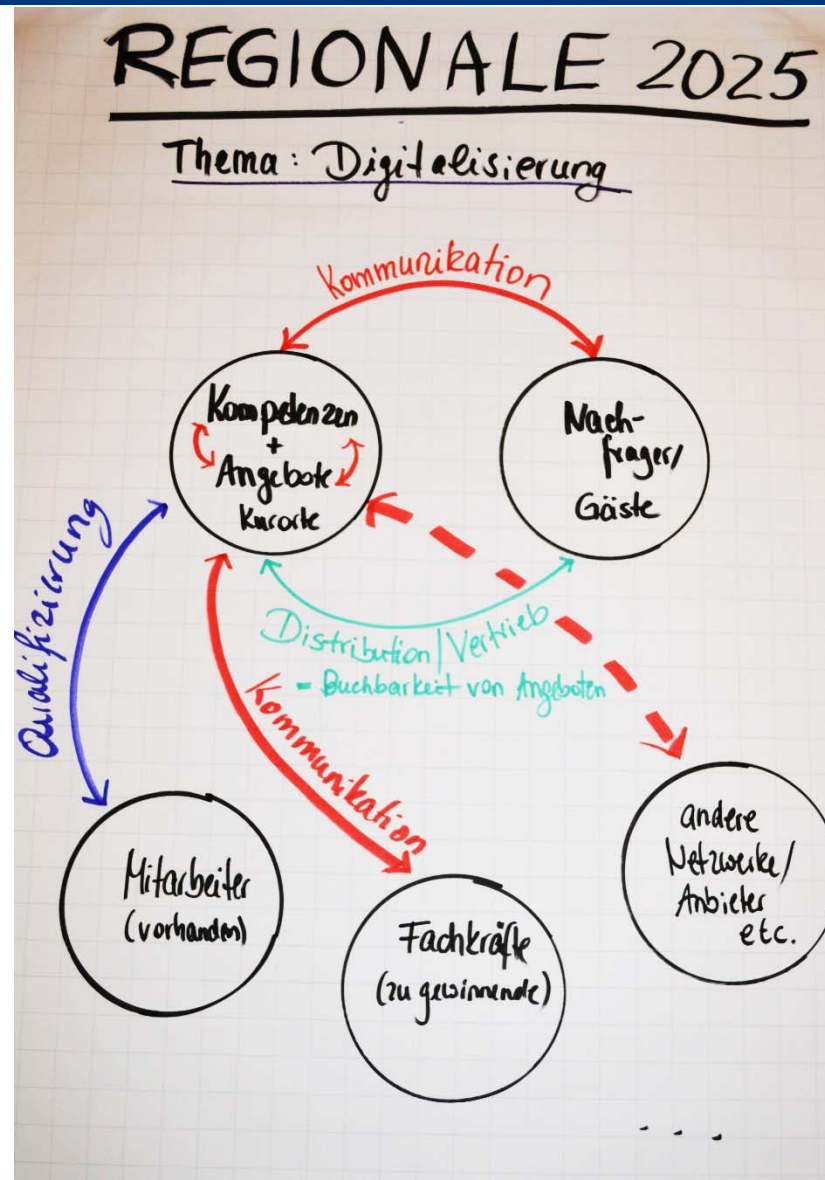 REGIONALE 2025
Thema: Digitalisierung
Kommunikation
Kompetenzen
+
Angebote
Kurorte
Nach-
frager/
Gäste
Qualifizierung
Distribution/Vertrieb
- Buchbarkeit von Angeboten
Kommunikation
Mitarbeiter
(vorhanden)
Fachkräfte
(zu gewinnende)
andere
Netzwerke/
Anbieter
etc.
...